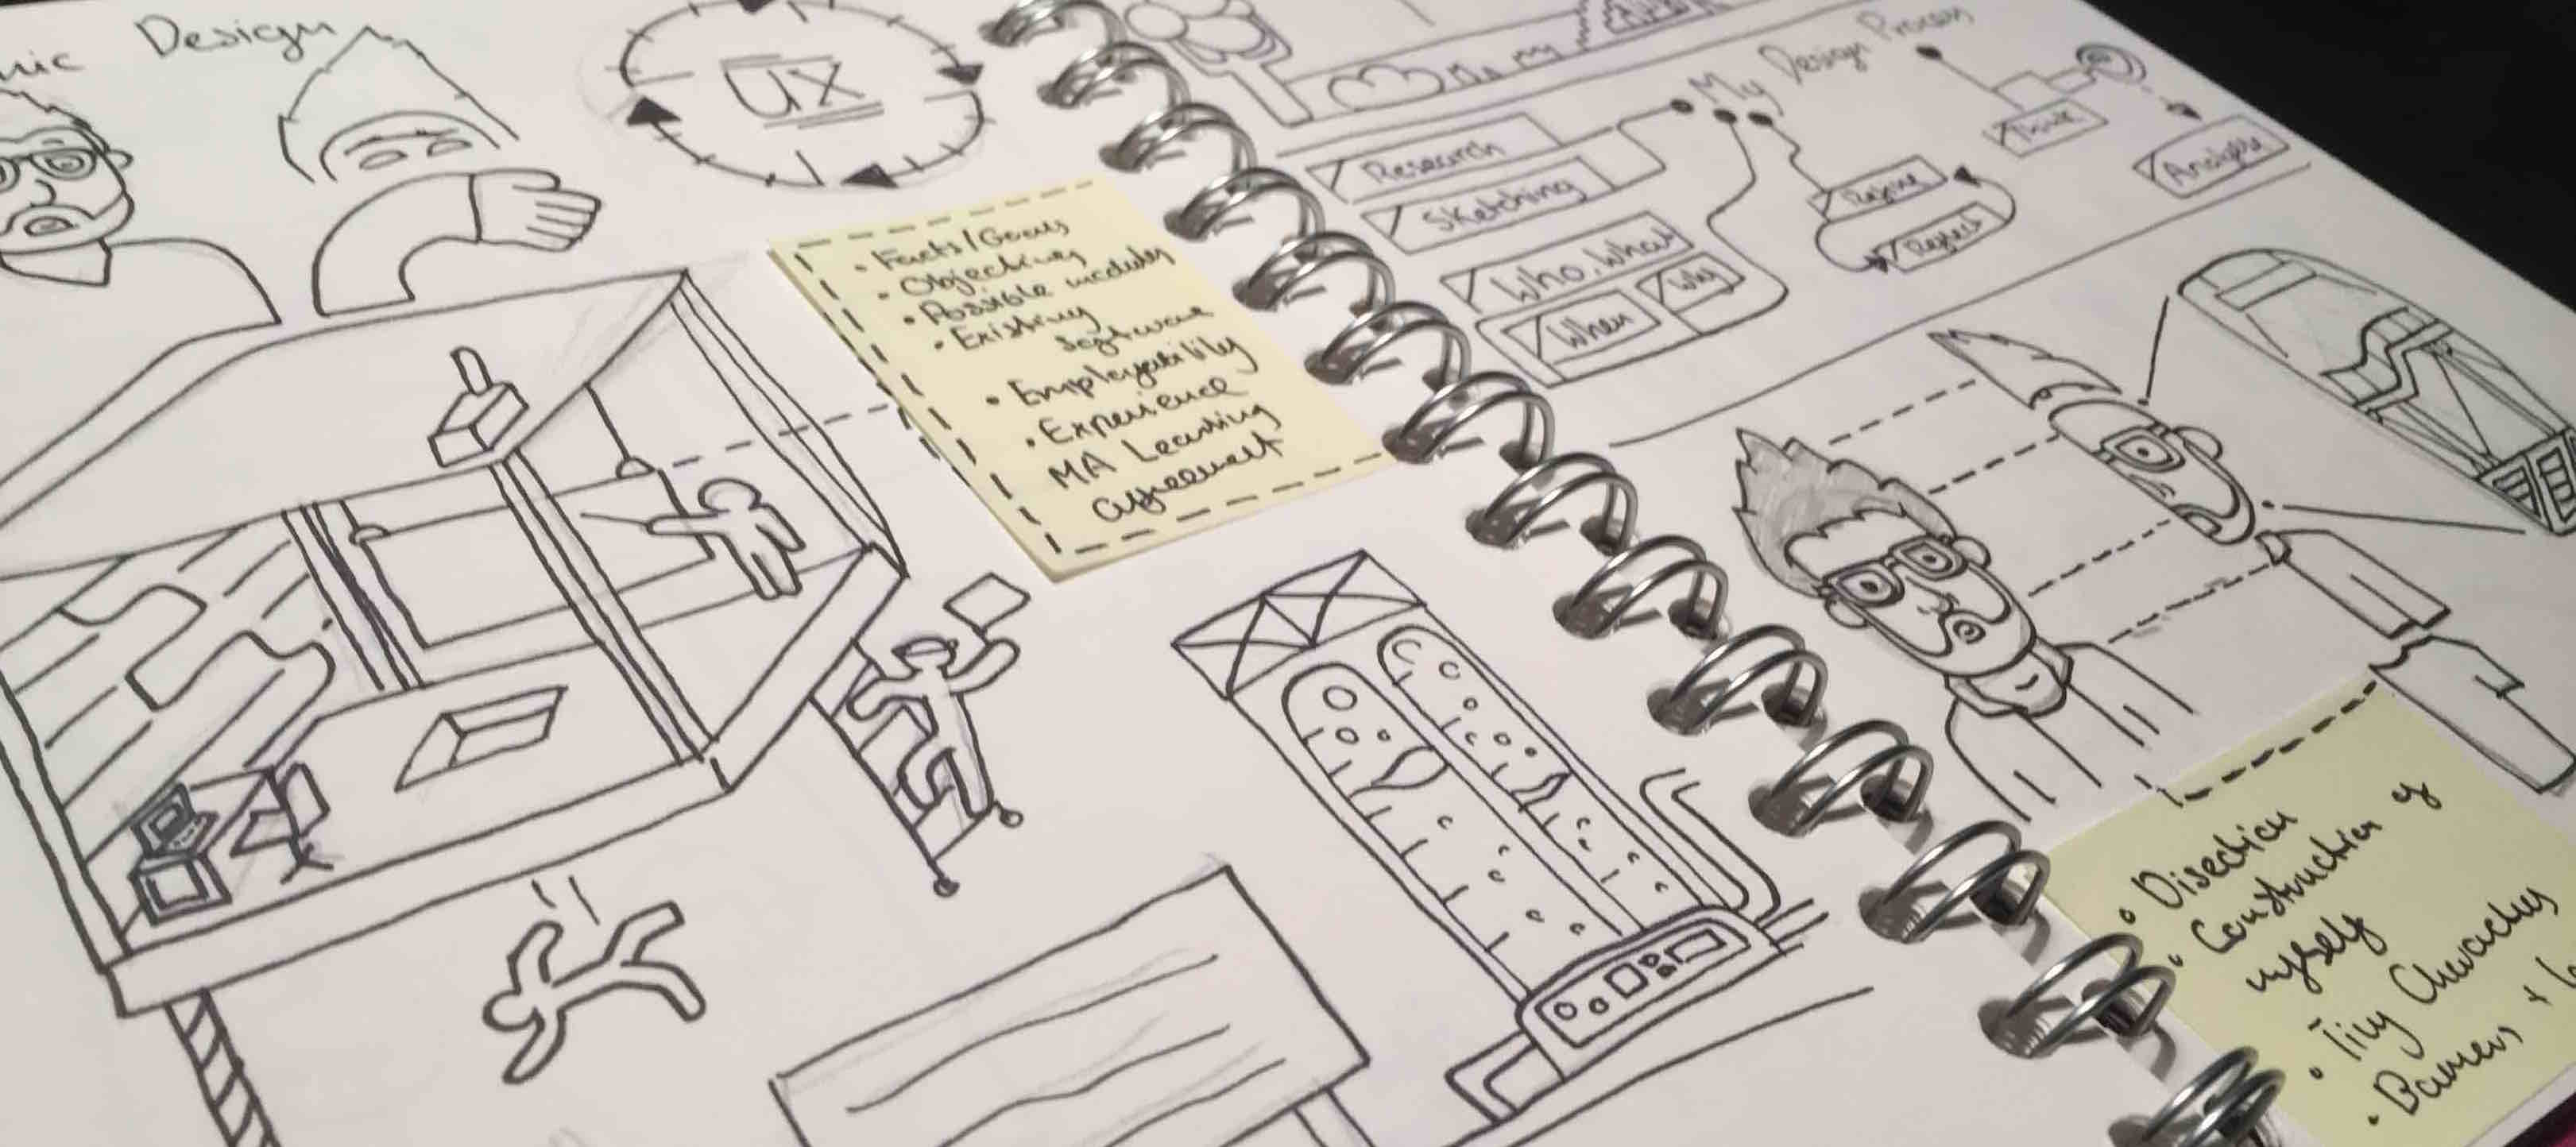 nic Design
UX
• Facts/Goals
• Objectives
• Possible modules
• Existing
software
• Employability
• Experience
MA Learning
agreement
My Design Process
Research
Sketching
Who, What
Why
When
Refine
Reflect
Think
Analyse
• Disection
• Construction of
myself
• Tiny Characters
• Banners +